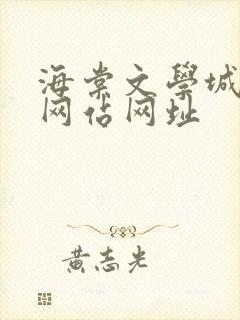 海棠文學城
网估网址
黄志光